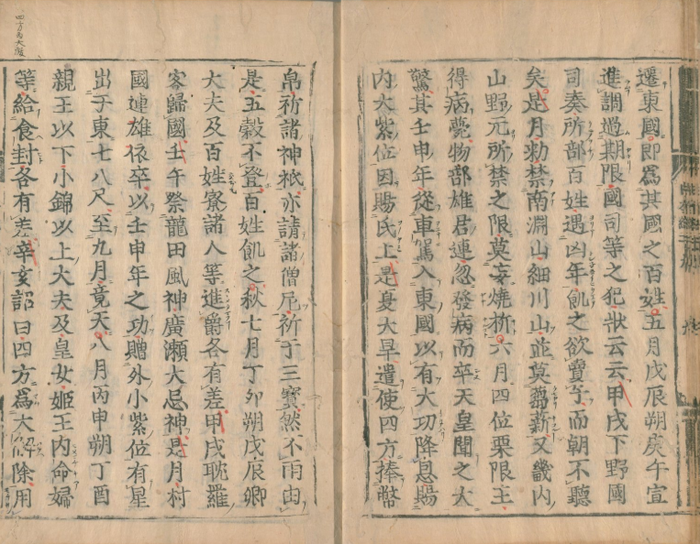 遷東國即爲其國之百姓五月戊辰朔庚午宣
進調過期限國司等之犯狀云云甲戌下野國
司奏所部百姓遇凶年飢之欲賣子而朝不聽
矣是月勅禁南淵山細川山並莫蒭薪又畿内
山野元所禁之限莫妄燒折六月四位栗隈王
得病薨物部雄君連忽發病而卒天皇聞之大
驚其壬申年從車駕入東國以有大功降恩賜
内大紫位因賜氏上是身大旱遣使四方捧幣
帛祈諸神祇亦請諸僧尼祈于三寶然不雨由
是五穀不登百姓飢之秋七月丁卯朔戊辰卿
大夫及百姓寮諸人等進爵各有差甲戌耽羅
客歸國壬午祭龍田風神廣瀬大忌神是月村
國連雄依卒以壬申年之功贈外小紫位有星
出于東七八尺至九月竟天八月丙申朔丁酉
親王以下小錦以上大夫及皇女姬王内命婦
等給食封各有差辛亥詔曰四方爲大解除用